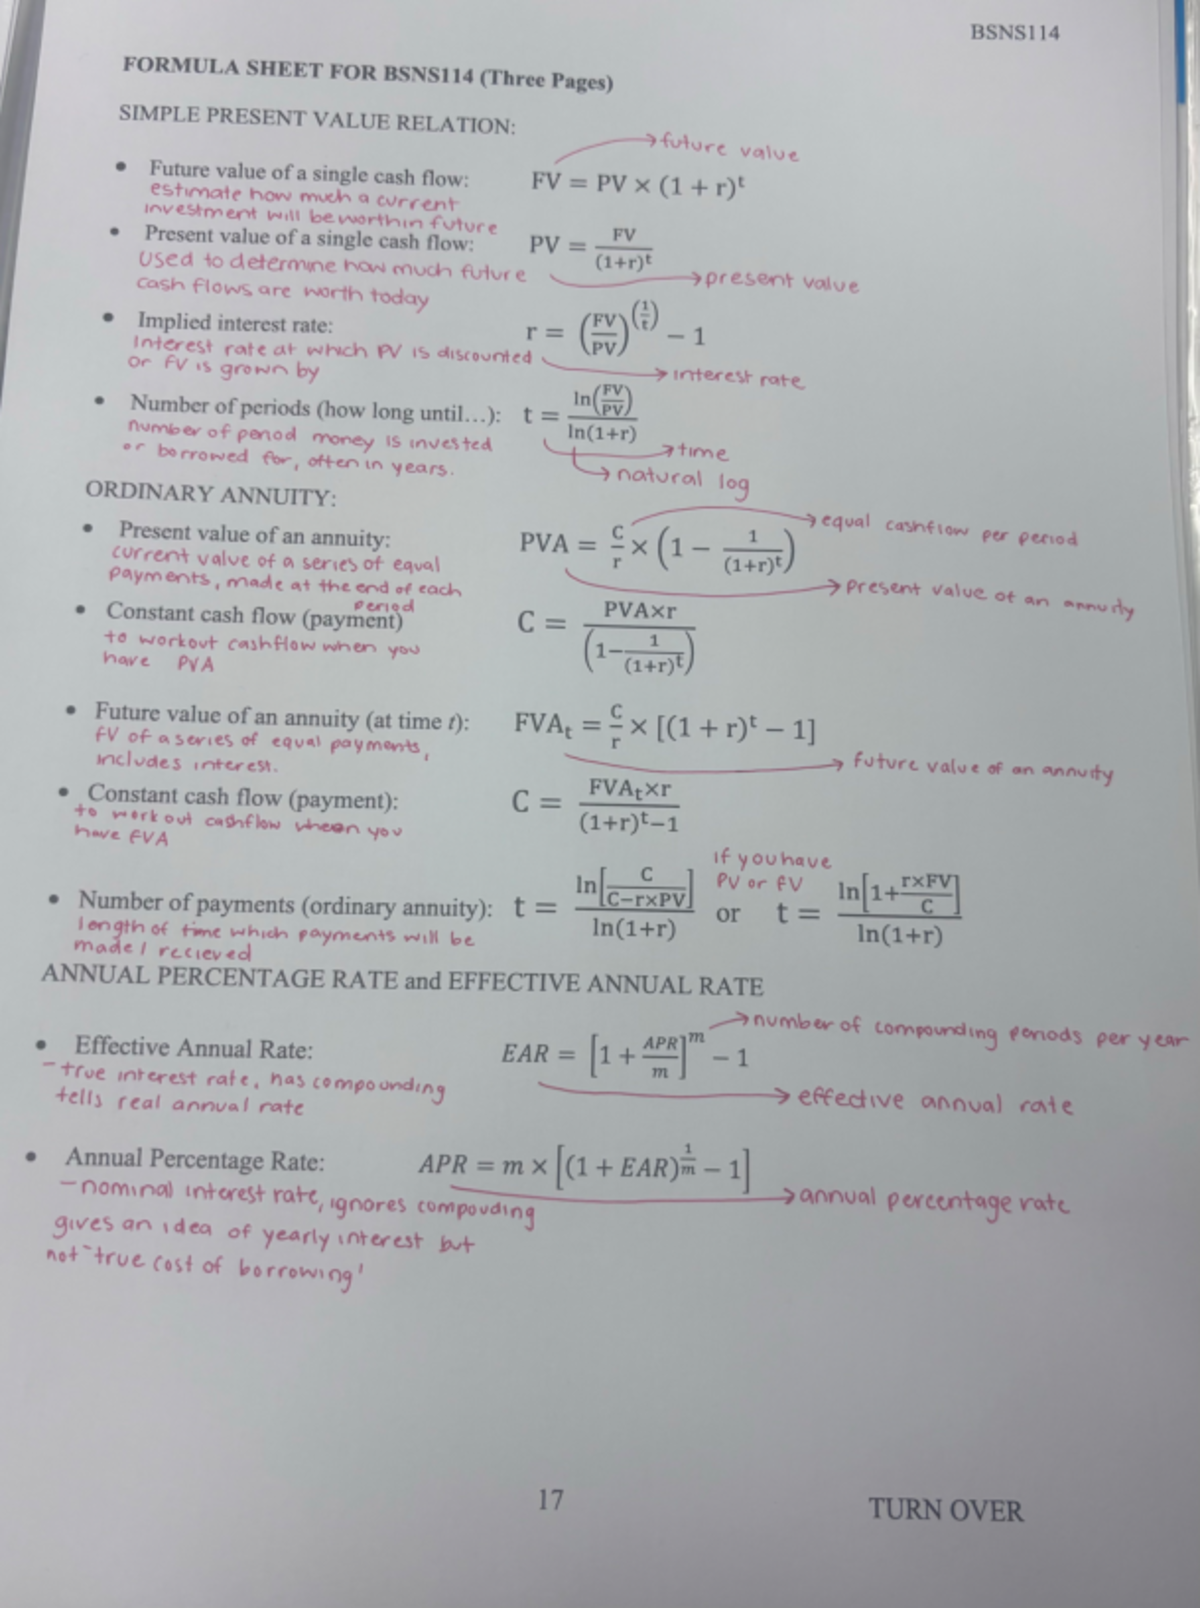 BSNS114
FORMULA SHEET FOR BSNS114 (Three Pages)
SIMPLE PRESENT VALUE RELATION:
→future value
• Future value of a single cash flow: FV = PV × (1 + r)^t
estimate how much a current
investment will be worth in future
• Present value of a single cash flow: PV = FV/(1+r)^t
Used to determine how much future
→present value
cash flows are worth today
• Implied interest rate: r = (FV/PV)^(1/t) − 1
Interest rate at which PV is discounted
→interest rate
or FV is grown by
• Number of periods (how long until…): t = ln(FV/PV)/ln(1+r)
number of period money is invested
→time
or borrowed for, often in years.
→natural log
ORDINARY ANNUITY:
→equal cashflow per period
• Present value of an annuity: PVA = C/r × (1 − 1/(1+r)^t)
current value of a series of equal
payments, made at the end of each
period
→present value of an annuity
• Constant cash flow (payment) C = PVA×r/(1−1/(1+r)^t)
to workout cashflow when you
have PVA
• Future value of an annuity (at time t): FVAt = C/r × [(1 + r)^t − 1]
FV of a series of equal payments,
includes interest.
→future value of an annuity
• Constant cash flow (payment): C = FVAt×r/(1+r)^t−1
to work out cashflow when you
have FVA
If you have
PV or FV
• Number of payments (ordinary annuity): t = ln[C/C−r×PV]/ln(1+r) or t = ln[1+r×FV/C]/ln(1+r)
length of time which payments will be
made / recieved
ANNUAL PERCENTAGE RATE and EFFECTIVE ANNUAL RATE
→number of compounding periods per year
• Effective Annual Rate: EAR = [1 + APR/m]^m − 1
- true interest rate, has compounding
→effective annual rate
tells real annual rate
• Annual Percentage Rate: APR = m × [(1 + EAR)^(1/m) − 1]
- nominal interest rate, ignores compouding
→annual percentage rate
gives an idea of yearly interest but
not "true cost of borrowing'
17
TURN OVER